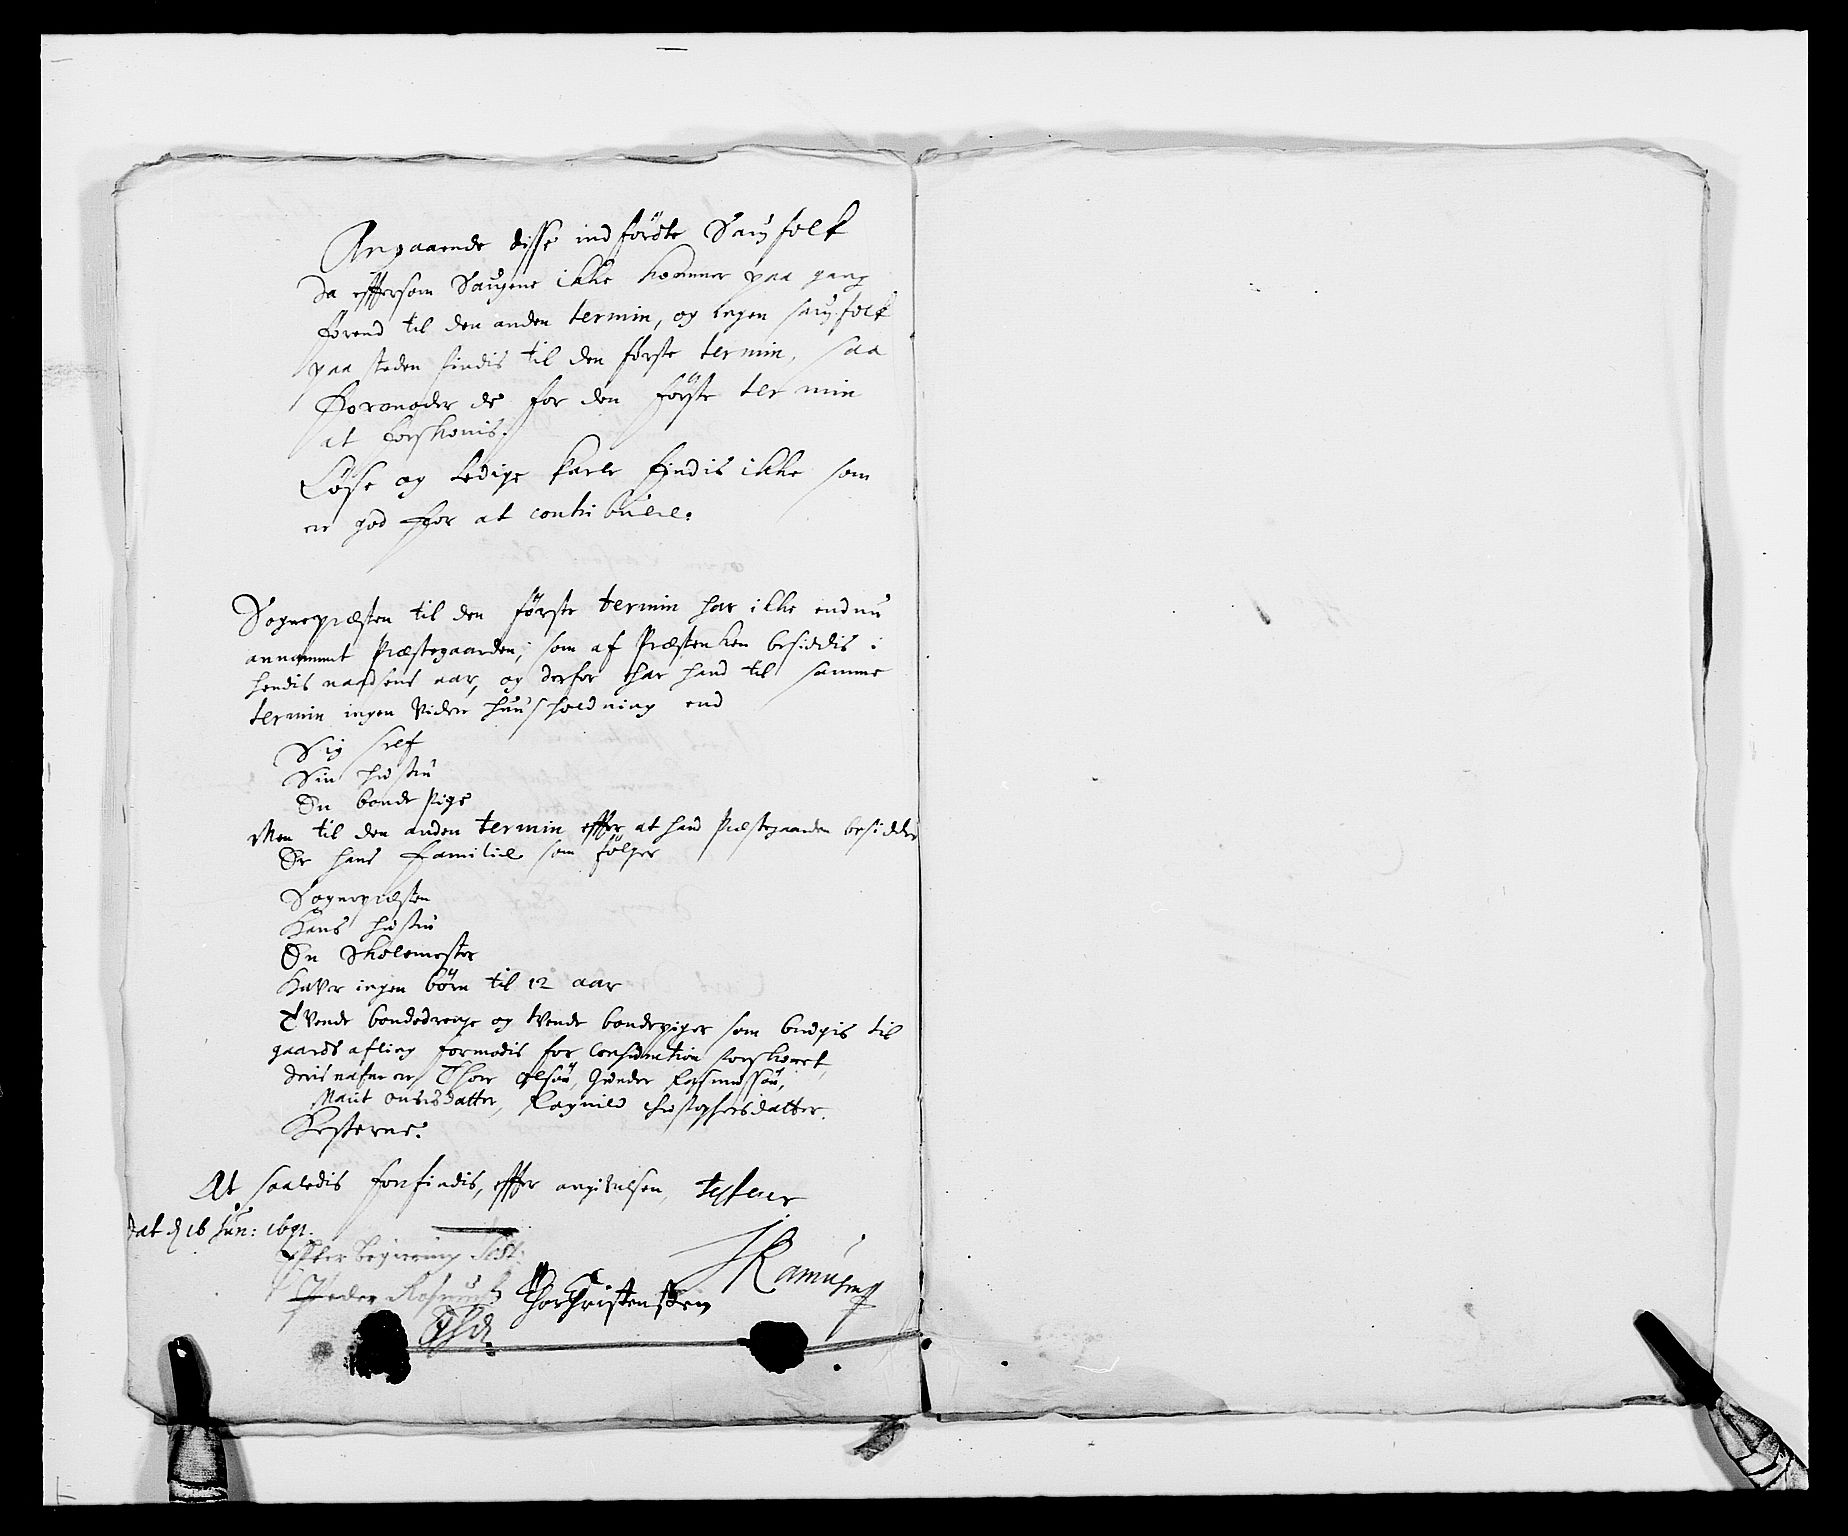 Angaaende disse indførte Saugfolk
da efftersom Saugene ikke kommer paa gang
førend til den anden termin, og ingen saugfolk
paa steden findis til den første termin, saa
Formoder de for den första termin
at forskonis.
Løse og Ledige karle findis ikke som
er god for at contribuere.
Sognepræsten til den første termin har ikke endnu
annammet Præstegaarden, som af Præstenken besiddis i
hendis naadsens aar, og derfor har hand til samme
termin ingen Videre huusholdning end
Sig self
Sin hustru
En bonde pige
Men til den anden termin effter at hand Præstegaarden besidder
Er hans Familie som følger
Sognepræsten
Hans hustru
En Skolemester
Haver ingen börn til 12 aar
Tvende bondedrenge og tvende bondepiger som brugis til
gaards afling formodis for Consumption forskonet,
deris nafne er Thore Olsøn, Gunder Rasmussøn,
Marit datter, Ragnild Christophersdatter.
Resterne.
At saaledis forfindis, effter angivelsen, testerer
Dat d 16 Jun: 1691.
Effter begiering Test:
Peder Thor Christensen JRamushn